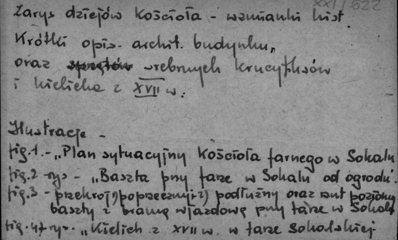 XXI/622
Zarys dziejów Kościoła - wzmianki hist.
Krótki opis archit. budynku,
oraz sprzętów srebrnych krucyfiksów
i kielicha z XVII w.
Ilustracje -
fig. 1. - "Plan sytuacyjny Kościoła farnego w Sokalu
fig. 2 - rys - "Baszta przy farze w Sokalu od ogrodu".
fig. 3 - przekrój 1) poprzeczny i 2) podłużny oraz rzut poziomy
baszty z bramą wjazdową przy farze w Sokalu
fig. 4 rys. "Kielich z XVII w. w farze Sokalskiej